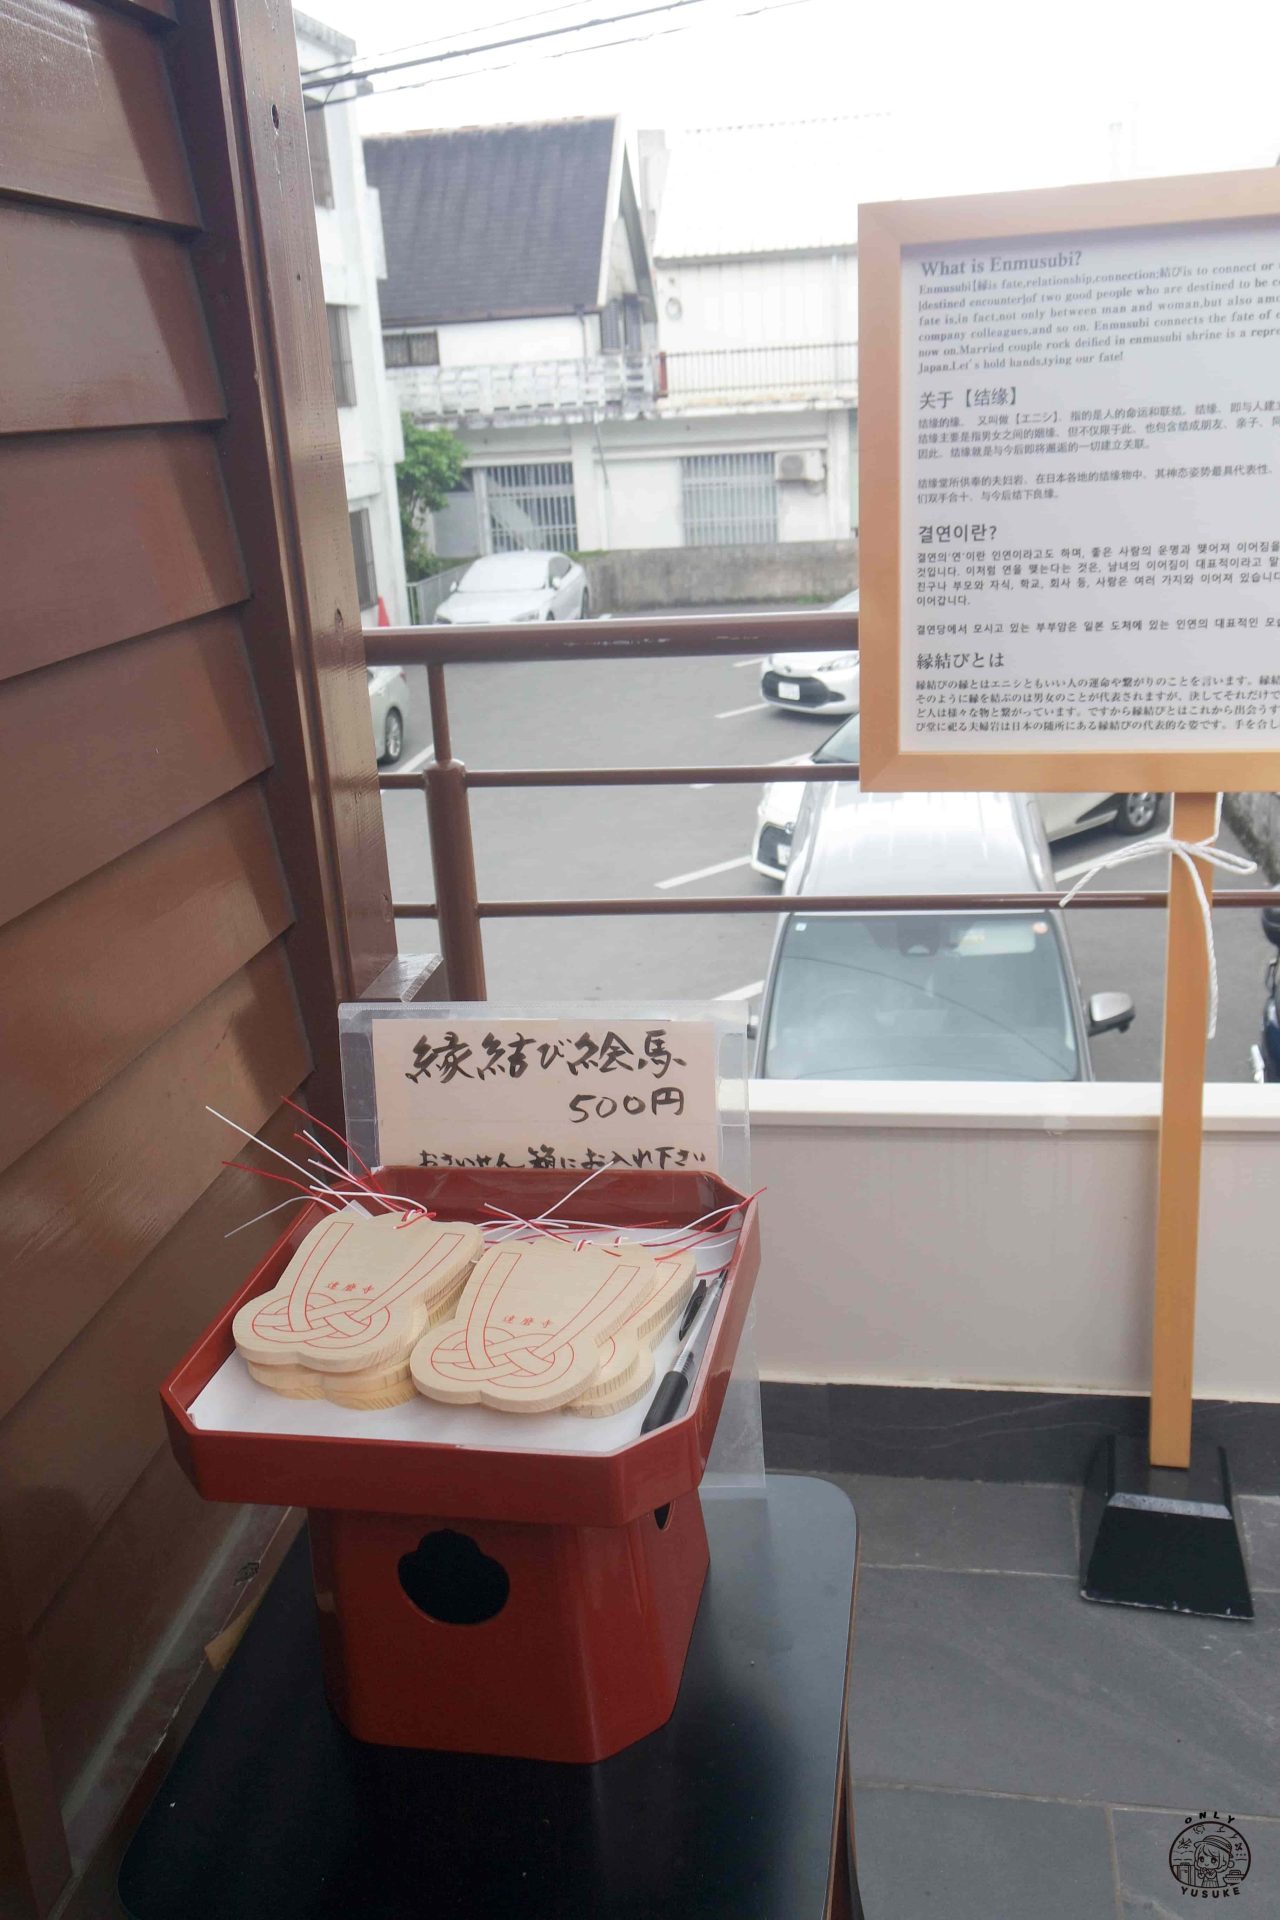 What is Enmusubi?
Enmusubi[縁is fate,relationship,connection;結びis to connect or
[destined encounter]of two good people who are destined to be
fate is,in fact,not only between man and woman,but also
company colleagues,and so on. Enmusubi connects the fate of
now on.Married couple rock deified in enmusubi shrine is a
Japan.Let's hold hands,tying our fate!
关于【结缘】
结缘的缘、又叫做【エニシ】、指的是人的命运和联结。结缘、即与人建立
结缘主要是指男女之间的姻缘、但不仅限于此、也包含结成朋友、亲子、
因此、结缘就是与今后即将邂逅的一切建立关联。
结缘堂所供奉的夫妇岩、在日本各地的结缘物中、其神态姿势最具代表性、
们双手合十、与今后结下良缘。
결연이란?
결연의'연'이란 인연이라고도 하며, 좋은 사람의 운명과 맺어져 이어짐을
것입니다. 이처럼 연을 맺는다는 것은, 남녀의 이어짐이 대표적이라고 말
친구나 부모와 자식, 학교, 회사 등, 사람은 여러 가지와 이어져 있습니다
이어갑니다.
결연당에서 모시고 있는 부부암은 일본 도처에 있는 인연의 대표적인 모습
縁結びとは
縁結びの縁とはエニシともいい人の運命や繋がりのことを言います。縁結
そのように縁を結ぶのは男女のことが代表されますが、決してそれだけで
ど人は様々な物と繋がっています。ですから縁結びとはこれから出会うす
び堂に祀る夫婦岩は日本の随所にある縁結びの代表的な姿です。手を合し
縁結び絵馬
500円
おさいせん箱にお入れ下さい
達磨寺
達磨寺
ONLY
YUSUKE